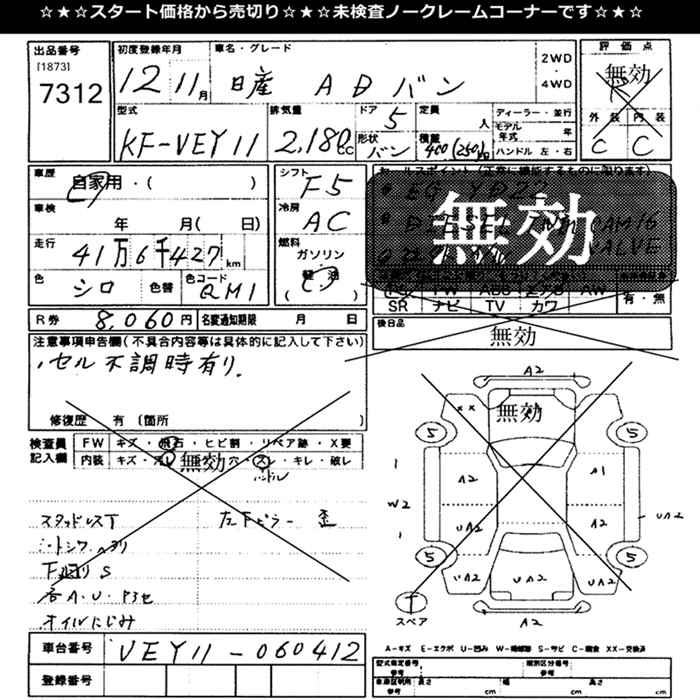 ☆★☆★スタート価格から売切り☆★☆★未検査ノークレームコーナーです☆★☆
出品番号 初度登録年月 車名・グレード 評価点
[1873]
7312
12 11月 日産 ADバン
2WD
・
4WD
無効
外装 内装
C C
型式 排気量 ドア 定員 ディーラー・並行
KF-VEY11 2,180cc 5 人
形状 積載 モデル年式 年
バン 400(250)kg ハンドル 左・右
車歴 シフト セールスポイント(正常に機能するものに限ります)
自家用・( ) F5
車検 冷房
年 月( 日) AC
無効
走行 燃料
41万6千427km ガソリン
軽油
( )
VALVE
色 色替 色コード
シロ QM1
SR ナビ TV カワ 有・無
R券 8,060円 名変通知期限 月 日
後日品 無効
注意事項申告欄(不具合内容等は具体的に記入して下さい)
セル不調時有り。
修復歴 有〔箇所 〕
検査員記入欄
FW キズ・飛石・ヒビ割・リペア跡・X要
内装 キズ・汚レ・穴・スレ・キレ・破レ
無効
ハンドル
スタッドレスT 左下ピラー 歪
シートシワ ヘタリ
下廻りS
各A・U・
オイルにじみ
無効
A2
XX
5 5
1 A2 A1
W2
1 UA2 A2 UA2
5 5
UA2 UA2 UA2
T
スペア A2
A-キズ E-エクボ U-凹み W-補修跡 S-サビ C-腐食 XX-交換済
車台番号 VEY11-060412
登録番号
型式指定番号 類別区分番号
参考 参考
車庫証明用 長さ 幅 高さ
参考 cm cm cm